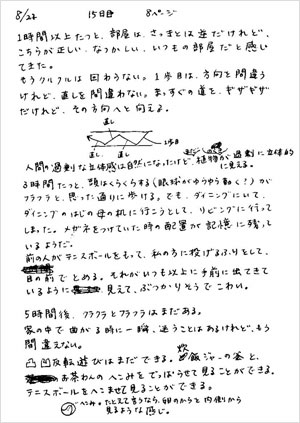 8/22 15日目 8ページ
1時間以上たつと、部屋は、さっきとは逆だけれど、
こちらが正しい、なつかしい、いつもの部屋だと感じ
てきた。
もうクルクルは回わらない。1歩目は、方向を間違う
けれど、直しを間違わない。まっすぐの道を、ギザギザ
だけれど、その方向へと向える。
直し
1歩目
直し 直し
人間の過剰な立体感は自然になったけど、植物が過剰に立体的
に見える。
3時間たつと、頭はくらくらする(眼球がゆうゆう動く!)が
フラフラと、思った通りに歩ける。でも、ダイニングにいて、
ダイニングのはじの母の机に行こうとして、リビングに行って
しまった。メガネをつけていた時の配置が記憶に残って
いるようだ。
前の人がテニスボールをもって、私の方に投げるふりをして、
目の前でとめる。それがいつも以上に手前に出てきて
いるように見えて、ぶつかりそうでこわい。
5時間後、フラフラとフラフラはまだある。
家の中で曲がる時に一瞬、迷うことはあるけれど、もう
間違えない。
凸凹反転遊びはまだできる。炊飯ジャーの釜と、
お茶わんのへこみをでっぱらせて見ることができる。
テニスボールをへこませて見ることができる。
へこみ。たとえて言うなら、卵のからを内側から
見るような感じ。